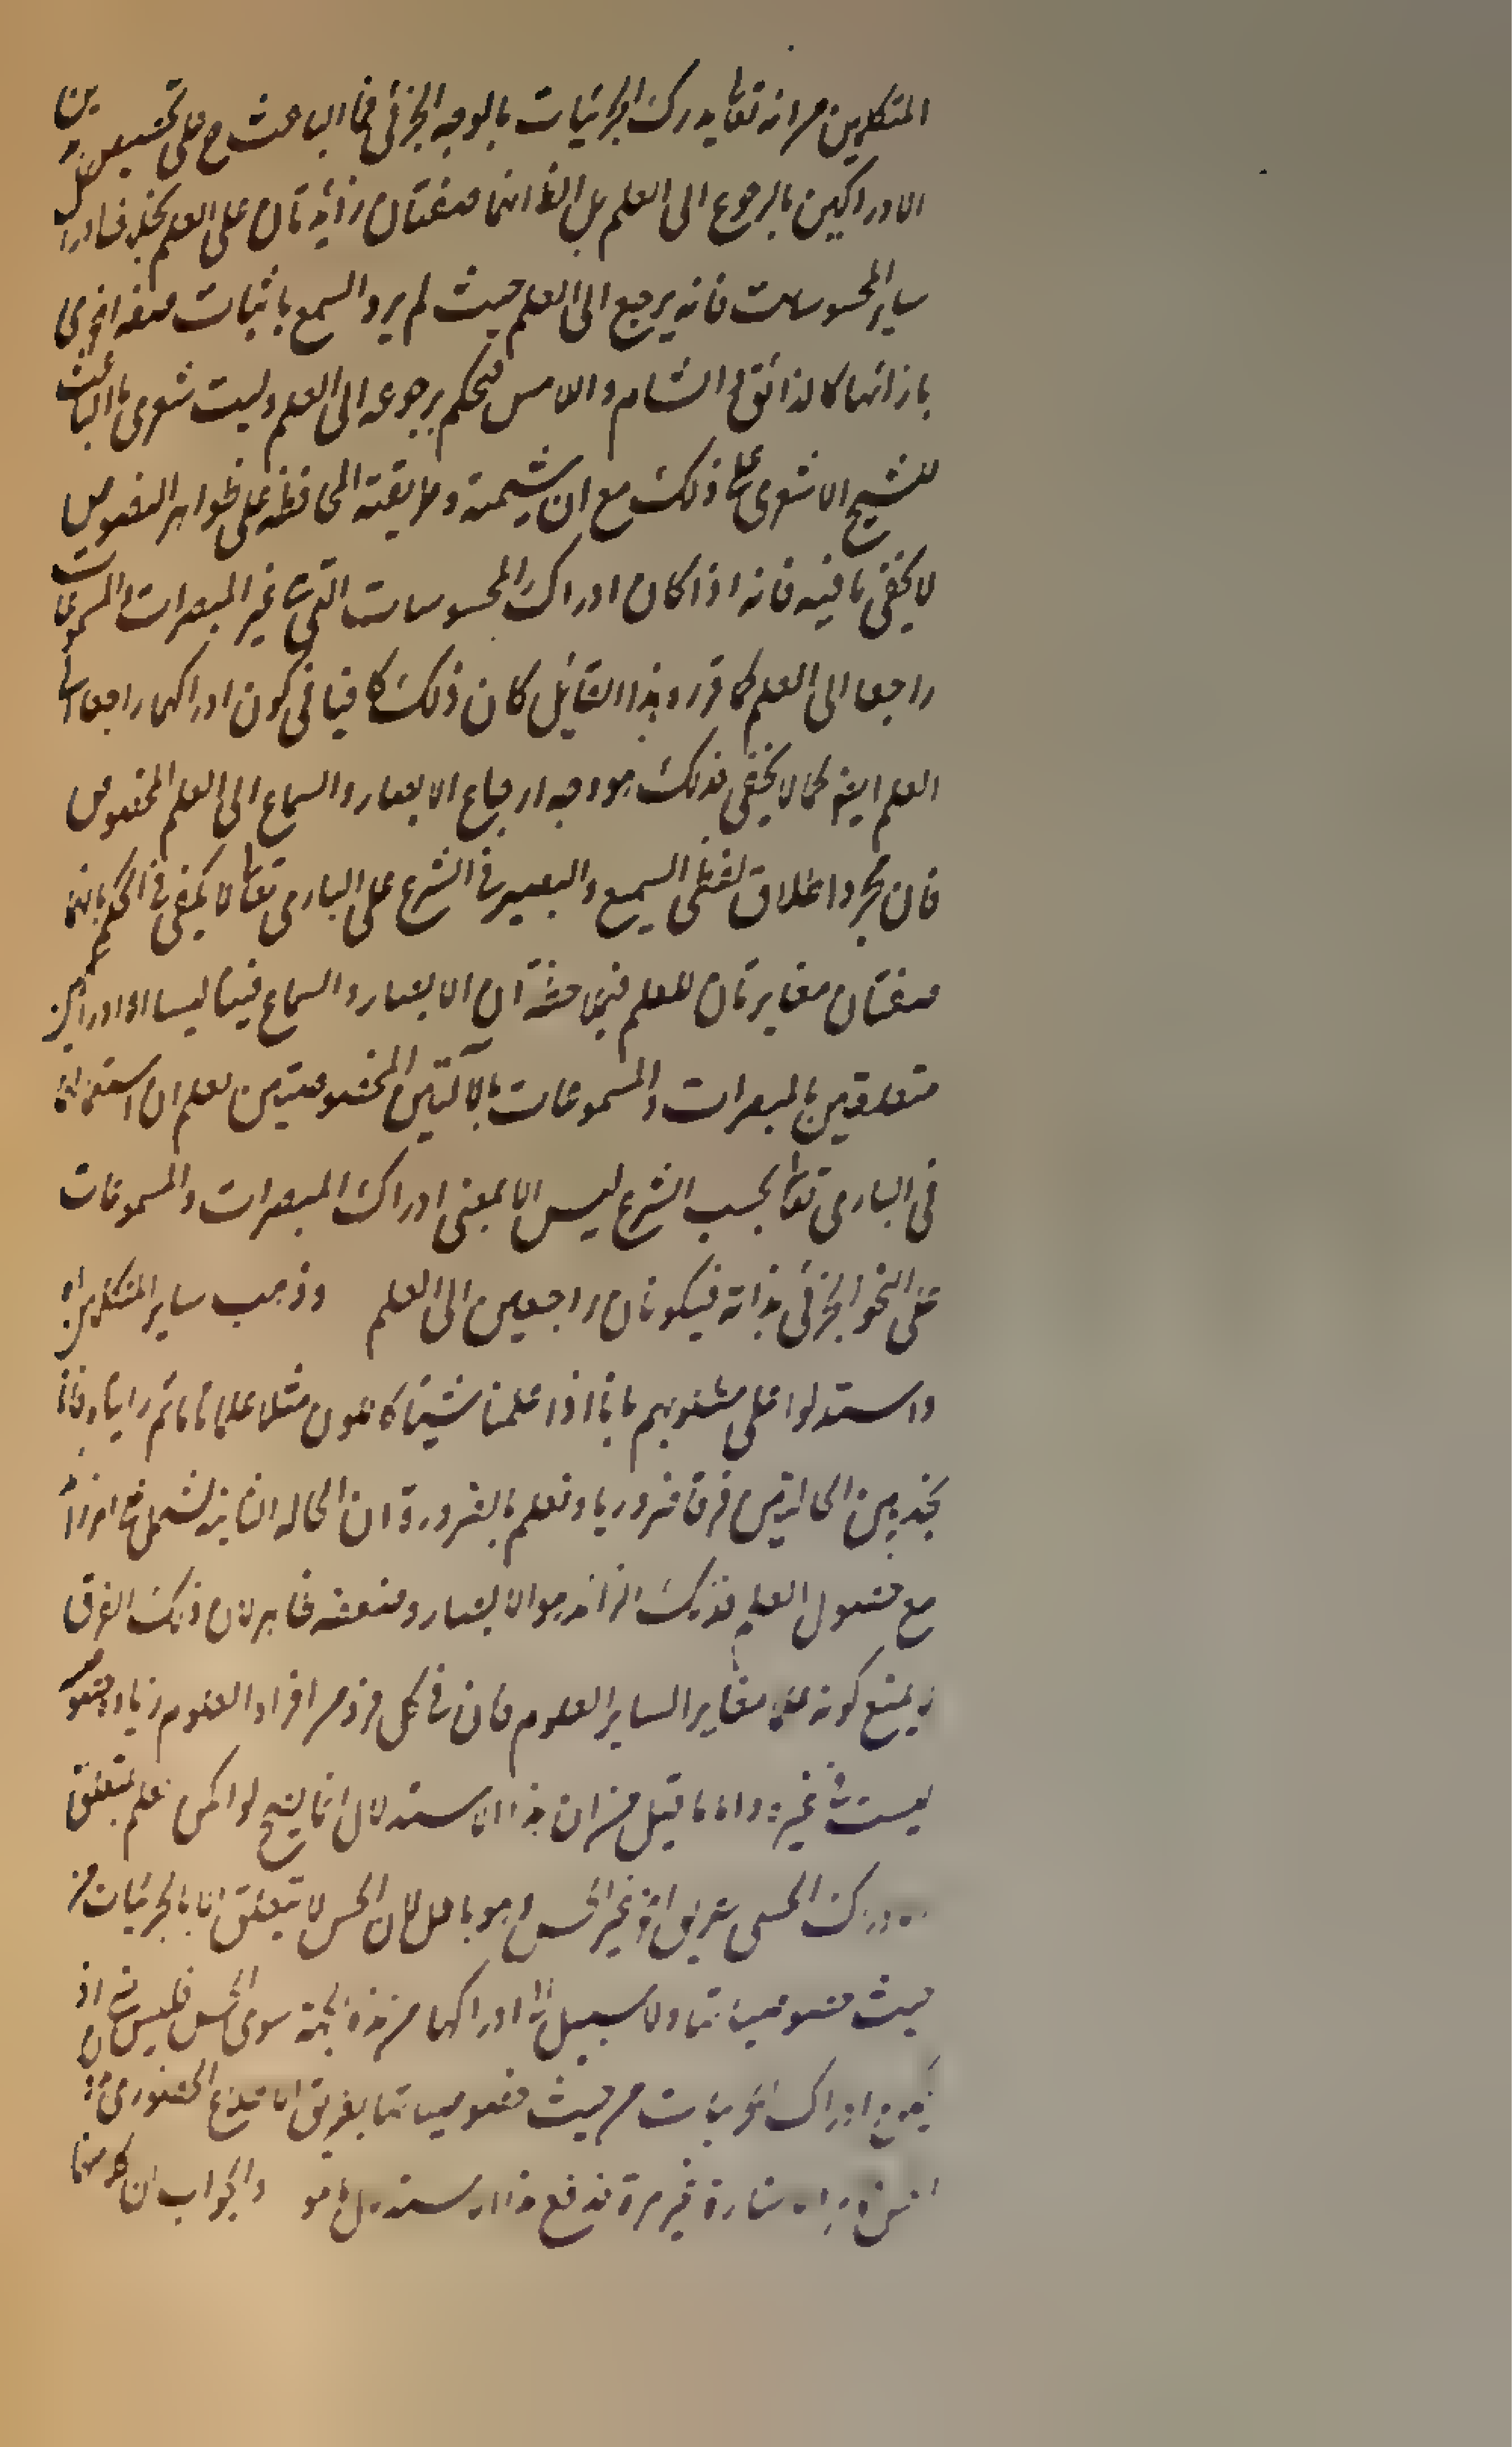 المتكلمين من انه تعا يدرك الجزئيات بالوجه الجزئي فما الباعث ح على تخصيص هذين
الادراكين بالرجوع الى العلم بل الظ انهما صفتان زائدتان على العلم بخلاف ادراك
ساير المحسوسات فانه يرجع الى العلم حيث لم يرد السمع باثبات صفة اخرى
بازائها كالذائق والشام واللامس فيحكم برجوعه الى العلم وليت شعرى ما الباعث
للشيخ الاشعرى على ذلك مع ان شيمته وطريقته المحافظة على ظواهر النصوص
لا يخفى ما فيه فانه اذا كان ادراك المحسوسات التى هى غير المبصرات والمسموعات
راجعا الى العلم كما قرره هذا القايل كان ذلك كافيا فى كون ادراكهما راجعا الى
العلم ايضا كما لا يخفى فذلك هو وجه ارجاع الابصار والسماع الى العلم المخصوص
فان مجرد اطلاق لفظى السميع والبصير فى الشرع على البارى تعا لا يكفى فى الحكم بانهما
صفتان مغايرتان للعلم فيما حقه ان الابصار والسماع فينا ليسا الا ادراكين
متعلقين بالمبصرات والمسموعات بالآلتين المخصوصتين نعلم ان استعمالهما
فى البارى تعا بحسب الشرع ليس الا بمعنى ادراك المبصرات والمسموعات
على النحو الجزئى بذاته فيكونان راجعين الى العلم وذهب ساير المتكلمين اه
واستدلوا على مطلوبهم بانا اذا علمنا شيئا كاللون مثلا علما تاما ثم رايناه فانا
نجد بين الحالتين فرقا ضروريا ونعلم بالضرورة ان الحالة الثانية تشتمل على امر زائد
مع حصول العلم فذلك الزائد هو الابصار وضعفه ظاهر لان ذلك الفرق
لا يمنع كونه علما مغايرا لساير العلوم فان فى كل فرد من افراد العلوم زيادة خصوصية
ليست فى غيره واما ما قيل من ان هذا الاستدلال انما يصح لو امكن علم يتعلق
بمدرك الحس بطريق اخر غير الحس وهو باطل لان الحس لا يتعلق الا بالجزئيات من
حيث خصوصياتها ولا سبيل الى ادراكها من هذه الجهة سوى الحس فليس بشئ اذ
ادراك الجزئيات من حيث خصوصياتها بطريق الاطلاع الحضورى
اشارة غير مرة فدفع هذا الاستدلال ما هو والجواب ان كلا منهما